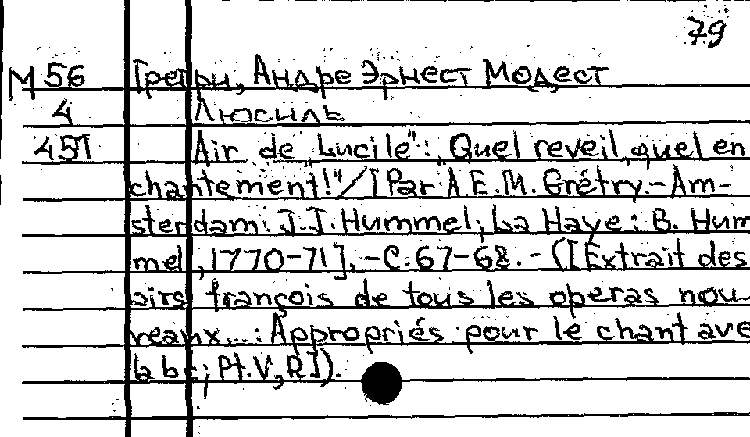 79
М 56 Гретри, Андре Эрнест Модест
4 Люсиль
451 Air de „Lucile": „Quel reveil, quel en
chantement!"/[Par A.E.M. Grétry.-Am-
sterdam: J.J. Hummel; La Haye: B. Hum
mel, 1770-71]. -C.67-68. - ([Extrait des
airs françois de tous les operas nou-
veaux...: Appropriés pour le chant ave
la bc; Pt.V, R]).